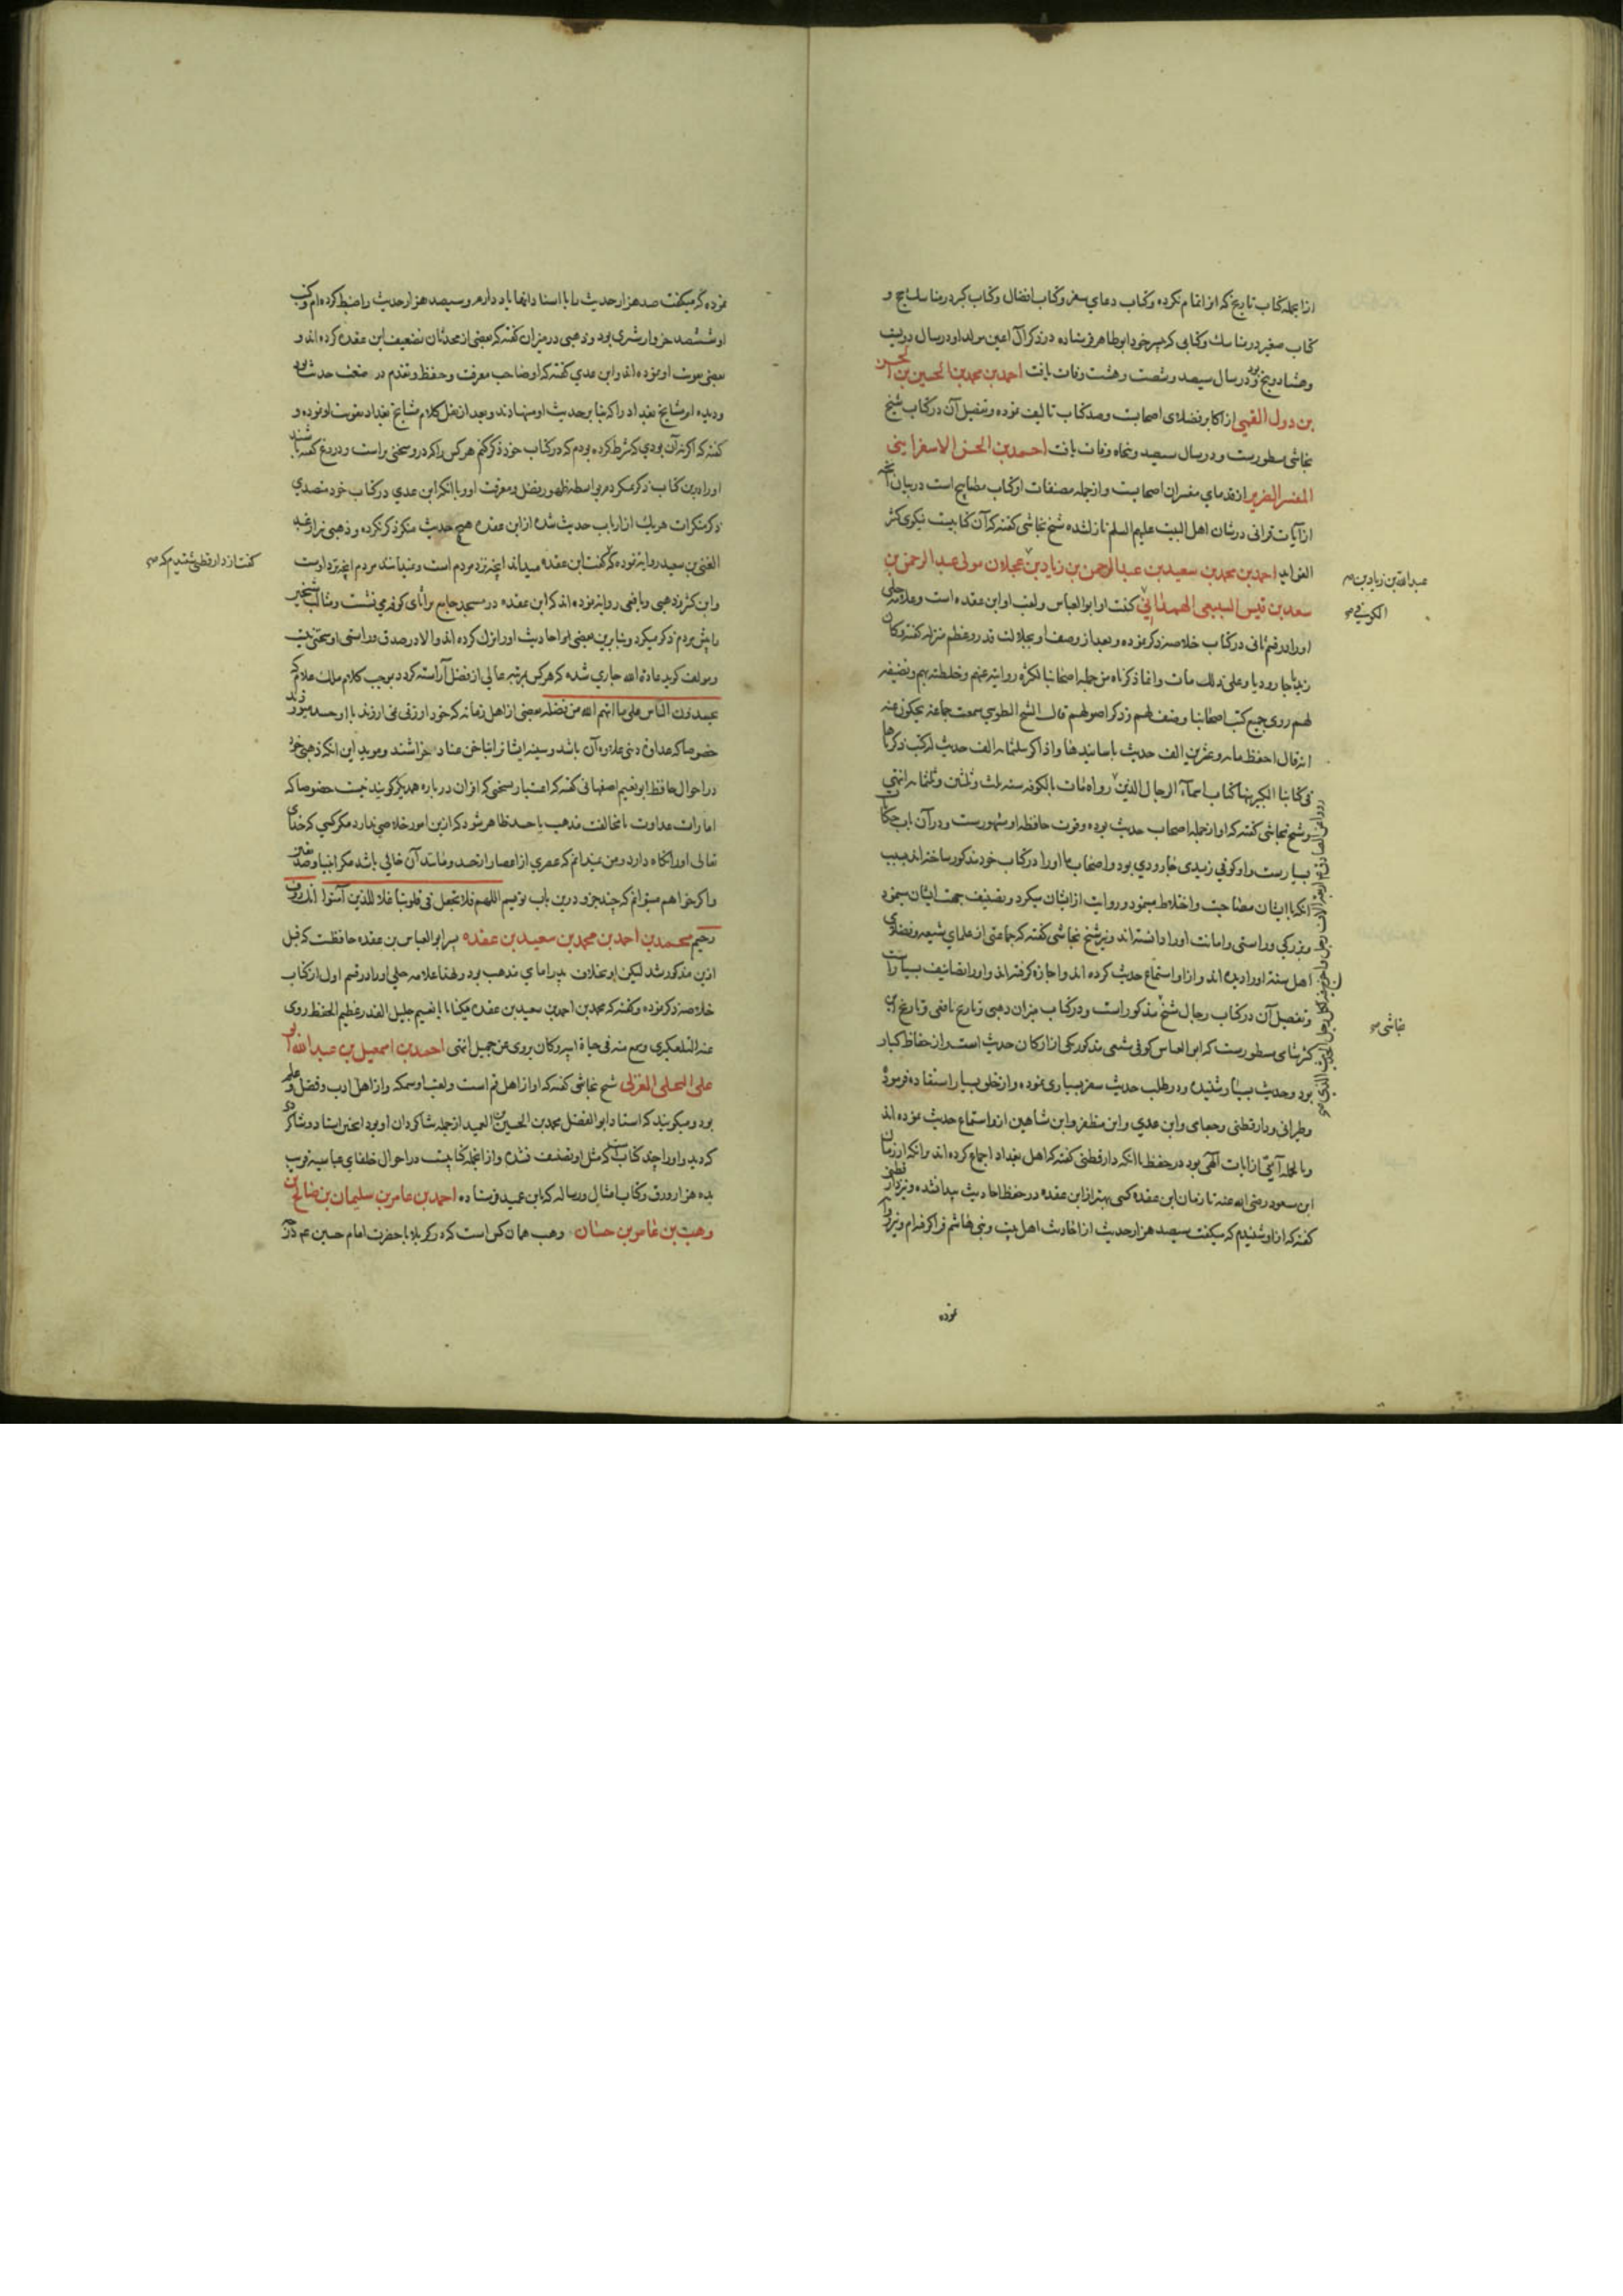 ازا نجمله کتاب تاریخ که از اتمام نکرده وکتاب دعای سفر وکتاب افضال وکتاب کبر در مناسک حج و
کتاب صغیر در مناسک وکتابی که بپسر خود ابوطاهر فرستاده در ذکر آل اعین مولد او در سال دویست
وهشتاد وپنج بود ودر سال سیصد وشصت وهشت وفات یافت احمد بن محمد بن الحسین بن الحسن
بن دول القمی از اکابر فضلای اصحابست وصد کتاب تالیف نموده وتفصیل آن در کتاب شیخ
نجاشی مسطورست ودر سال سیصد وپنجاه وفات یافت احمد بن الحسن الاسفراینی
المفسر الضریر از قدمای مفسران اصحابست واز جمله مصنفات او کتاب مصابیح است در بیان آنچه
از آیات قرآنی در شان اهل البیت علیهم السلم نازل شده شیخ نجاشی کفته که آن کتابیست نیکوی کثیر
الفواید احمد بن محمد بن سعید بن عبد الرحمن بن زیاد بن عجلان مولی عبد الرحمن بن
عبد الله بن زیاد بن
سعد بن قیس السبیعی الهمدانی کفت او ابو العباس ولقب او ابن عقده است وعلامه حلی
الکوفی
اورا در قسم ثانی در کتاب خلاصه ذکر نموده وبعد از وصف او بجلالت قدر وعظم منزله کفته وکان
زیدیا جارودیا وعلی ذلک مات وانما ذکرناه من جمله اصحابنا لکثره روایته عنهم وخلطته بهم وتصنیفه
لهم روی جمیع کتب اصحابنا وصنف لهم وذکر اصولهم قال الشیخ الطوسی سمعت جماعه یحکون عنه
انه قال احفظ مایه وعشرین الف حدیث باسانیدها واذاکر بثلثمایه الف حدیث له کتب ذکرناها
فی کتابنا الکبیر منها کتاب اسماء الرجال الذین رواه مات بالکوفه سنه ثلث وثلثین وثلثمایه انتهی
وشیخ نجاشی کفته که او از جمله اصحاب حدیث بوده وقوت حافظه او مشهورست ودر آن باب حکایات
بسیارست واو کوفی زیدی جارودی بود واصحاب ما اورا در کتاب خود مذکور ساخته اند بسبب
آنکه با ایشان مصاحبت واختلاط مینمود وروایت از ایشان میکرد وتصنیف بجهت ایشان مینمود
وبزرکی وراستی وامانت اورا دانسته اند ونیز شیخ نجاشی کفته که جماعتی از علمای شیعه وفضلای
اهل سنة اورا دیده اند وازو استماع حدیث کرده اند واجازه کرفته اند واورا تصانیف بسیارست
وتفصیل آن در کتاب رجال شیخ مذکور است ودر کتاب میزان ذهبی وتاریخ یافعی وتاریخ ابن
نجاشی
کثیر شامی مسطورست که ابو العباس کوفی شیعی مذکور یکی از ارکان حدیث است واز حفاظ کبار
بود وحدیث بسیار شنیده ودر طلب حدیث سفر بسیاری نموده واز خلق بسیار استفاده فرموده
وطبرانی ودارقطنی وجعابی وابن عدی وابن مظفر وابن شاهین ازو استماع حدیث نموده اند
وبالجمله آیتی از ایات آلهی بود در حفظ تا آنکه دارقطنی کفته که اهل بغداد اجماع کرده اند برآنکه از زمان
ابن مسعود رضی الله عنه تا زمان ابن عقده کسی بهتر از ابن عقده در حفظ احادیث پیدا نشده ونیز دارقطنی
کفته که ازو شنیدم که میکفت سیصد هزار حدیث از احادیث اهل بیت وبنی هاشم فرا کرفته ام ونیز
نموده
نموده که میکفت صد هزار حدیث را با اسناد آنها یاد دارم وسیصد هزار حدیث را ضبط کرده ام وکتب
او ششصد خروار شتری بود وذهبی در میزان کفته که بعضی از محدثان تضعیف ابن عقده کرده اند و
بعضی تقویت او نموده اند وابن عدی کفته که او صاحب معرفت وحفظ وتقدم در صنعت حدیث بود
ودیده ام مشایخ بغداد را که بنا بر حدیث او مینهادند وبعد از نقل کلام مشایخ بغداد تقویت او نموده و
کفته که اکر نه آن بودی که شرط کرده بودم که در کتاب خود ذکر کنم هر کس را که درو سخنی براست ودروغ کفته باشند
اورا درین کتاب ذکر نمیکردم بواسطه ظهور فضل ومعرفت او وبا آنکه ابن عدی در کتاب خود متصدی
ذکر منکرات هر یک از ارباب حدیث شده از ابن عقده هیچ حدیث منکر ذکر نکرده وذهبی نیز از عبد
الغنی بن سعید روایه نموده که کفت ابن عقده میداند آنچه نزد مردم است ونمیدانند مردم آنچه نزد اوست
کفت از دارقطنی شنیدم که
وابن کثیر وذهبی ویافعی روایه نموده اند که ابن عقده در مسجد جامع براثای کوفه می نشست ومثالب شیخین
را پیش مردم ذکر میکرد وبنابرین بعضی از احادیث اورا ترک کرده اند والا در صدق وراستی او سخنی نیست
ومولف کوید عادة الله جاری شده که هر کس بمرتبه عالی از فضل آراسته کردد بموجب کلام ملک علام که
یحسدون الناس علی ما اتیهم الله من فضله بعضی از اهل زمانه که خود ارزنی نمی ارزند با او حسد میورزند
خصوصا که عداوة دینی علاوه آن باشد وسینه ایشانرا بناخن عناد خراشند وموید این آنکه ذهبی خود
در احوال حافظ ابونعیم اصفهانی کفته که اعتبار بسخنی که اقران درباره همدیکر کویند نیست خصوصا که
امارات عداوت یا مخالفت مذهب یا حسد ظاهر شود که ازین امور خلاصی ندارد مکر کسی که خدای
تعالی اورا نکاه دارد ومن نمیدانم که عصری از اعصار از حسد ومانند آن خالی باشد مکر انبیا وصدیقین
واکر خواهم میتوانم که چند جزو درین باب نویسم اللهم فلا تجعل فی قلوبنا غلا للذین آمنوا انک رؤف
رحیم محمد بن احمد بن محمد بن سعید بن عقده پسر ابو العباس بن عقده حافظست که قبل
ازین مذکور شد لیکن او بخلاف پدر امامی مذهب بود ولهذا علامه حلی اورا در قسم اول از کتاب
خلاصه ذکر نموده وکفته که محمد بن احمد بن سعید بن عقده میکنا بابا نعیم جلیل القدر عظیم الحفظ روی
عنه التلعکبری وسمع منه فی حیاة ابیه وکان یروی عن حمید انتهی احمد بن اسمعیل بن عبد الله ابو
علی البجلی الغزلی شیخ نجاشی کفته که او از اهل قم است ولقب او سمکه واز اهل ادب وفضل وعلم
بود ومیکویند که استاد ابو الفضل محمد بن الحسین بن العمید از جمله شاکردان او بود
کردید واورا چند کتاب است که مثل او تصنیف نشده وازانجمله کتابیست در احوال خلفای عباسیه قریب
بده هزار ورق وکتاب امثال ورساله که بابن عمید فرستاده احمد بن عامر بن سلیمان بن صالح بن
وهب بن عامر بن حسان وهب همان کس است که در کربلا با حضرت امام حسین عم